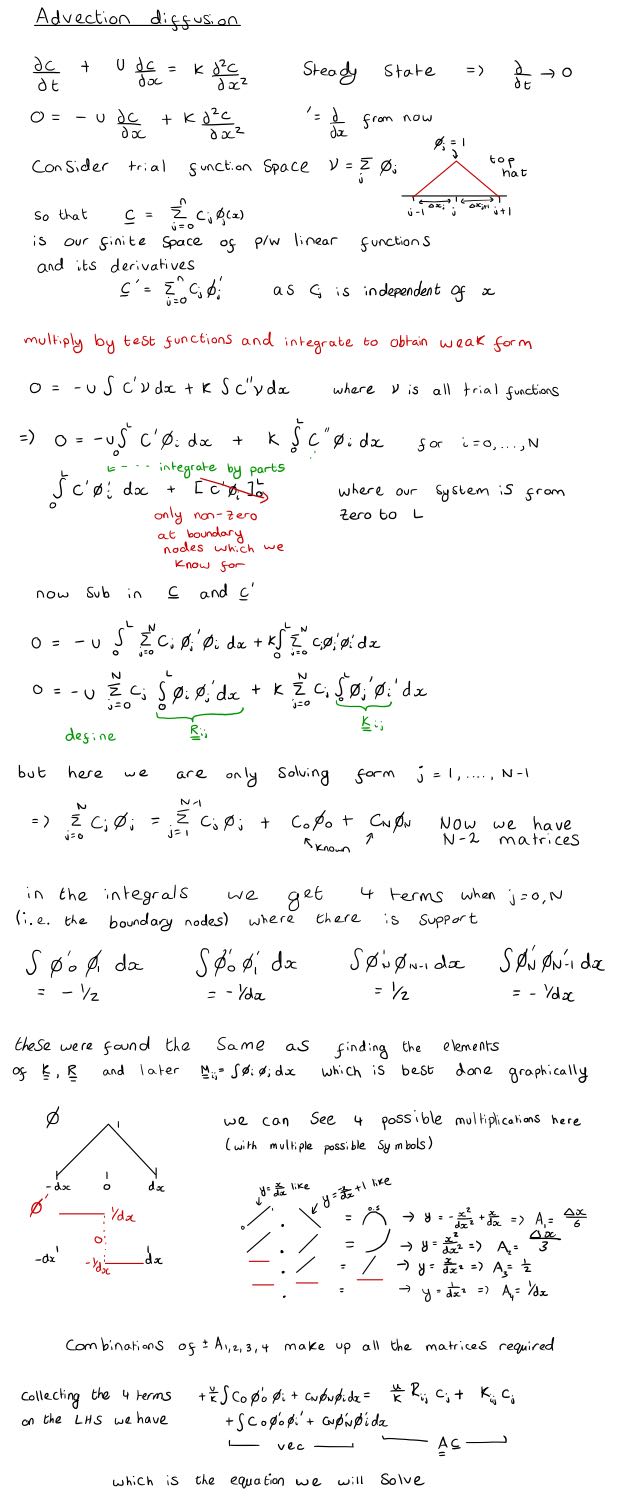 Advection diffusion
∂c/∂t + U ∂c/∂x = K ∂²c/∂x² Steady State => ∂/∂t → 0
0 = - U ∂c/∂x + K ∂²c/∂x² ' = ∂/∂x from now
Consider trial function space V = Σ_j ϕ_j
ϕ_j = 1
top hat
Δx_j Δx_{j+1}
j-1 j j+1
so that c = Σ_{j=0}^{n} C_j ϕ_j(x)
is our finite space of p/w linear functions
and its derivatives
c' = Σ_{j=0}^{n} C_j ϕ_j' as C_j is independent of x
multiply by test functions and integrate to obtain weak form
0 = - U ∫ C'V dx + K ∫ C''V dx where V is all trial functions
=> 0 = -U ∫_0^L C'ϕ_i dx + K ∫_0^L C''ϕ_i dx for i=0,...,N
integrate by parts
∫_0^L C'ϕ_i' dx + [C'ϕ_i]_0^L where our system is from
zero to L
only non-zero
at boundary
nodes which we
know for
now sub in c and c'
0 = - U ∫_0^L Σ_{j=0}^{N} C_j ϕ_j' ϕ_i dx + K ∫_0^L Σ_{j=0}^{N} C_j ϕ_j' ϕ_i' dx
0 = - U Σ_{j=0}^{N} C_j ∫_0^L ϕ_i ϕ_j' dx + K Σ_{j=0}^{N} C_j ∫_0^L ϕ_j' ϕ_i' dx
define R_ij K_ij
but here we are only solving form j = 1, ...., N-1
=> Σ_{j=0}^{N} C_j ϕ_j = Σ_{j=1}^{N-1} C_j ϕ_j + C_0 ϕ_0 + C_N ϕ_N Now we have
N-2 matrices
known
in the integrals we get 4 terms when j=0,N
(i.e. the boundary nodes) where there is support
∫ ϕ_0' ϕ_1 dx ∫ ϕ_0' ϕ_1' dx ∫ ϕ_N' ϕ_{N-1} dx ∫ ϕ_N' ϕ_{N-1}' dx
= - 1/2 = - 1/dx = 1/2 = - 1/dx
these were found the same as finding the elements
of K, R and later M_ij = ∫ ϕ_i ϕ_j dx which is best done graphically
ϕ
1
-dx 0 dx
ϕ' 1/dx
0
-dx -1/dx dx
we can see 4 possible multiplications here
(with multiple possible symbols)
y = x/dx like
y = -x/dx + 1 like
0.5
0 . = → y = - x²/dx² + x/dx => A_1 = Δx/6
. = → y = x²/dx² => A_2 = Δx/3
. = → y = x/dx² => A_3 = 1/2
. = → y = 1/dx² => A_4 = 1/dx
Combinations of ± A_{1,2,3,4} make up all the matrices required
collecting the 4 terms + U/K ∫ C_0 ϕ_0' ϕ_i + C_N ϕ_N' ϕ_i dx = U/K R_ij C_j + K_ij C_j
on the LHS we have + ∫ C_0 ϕ_0' ϕ_i' + C_N ϕ_N' ϕ_i' dx
vec A c
which is the equation we will solve